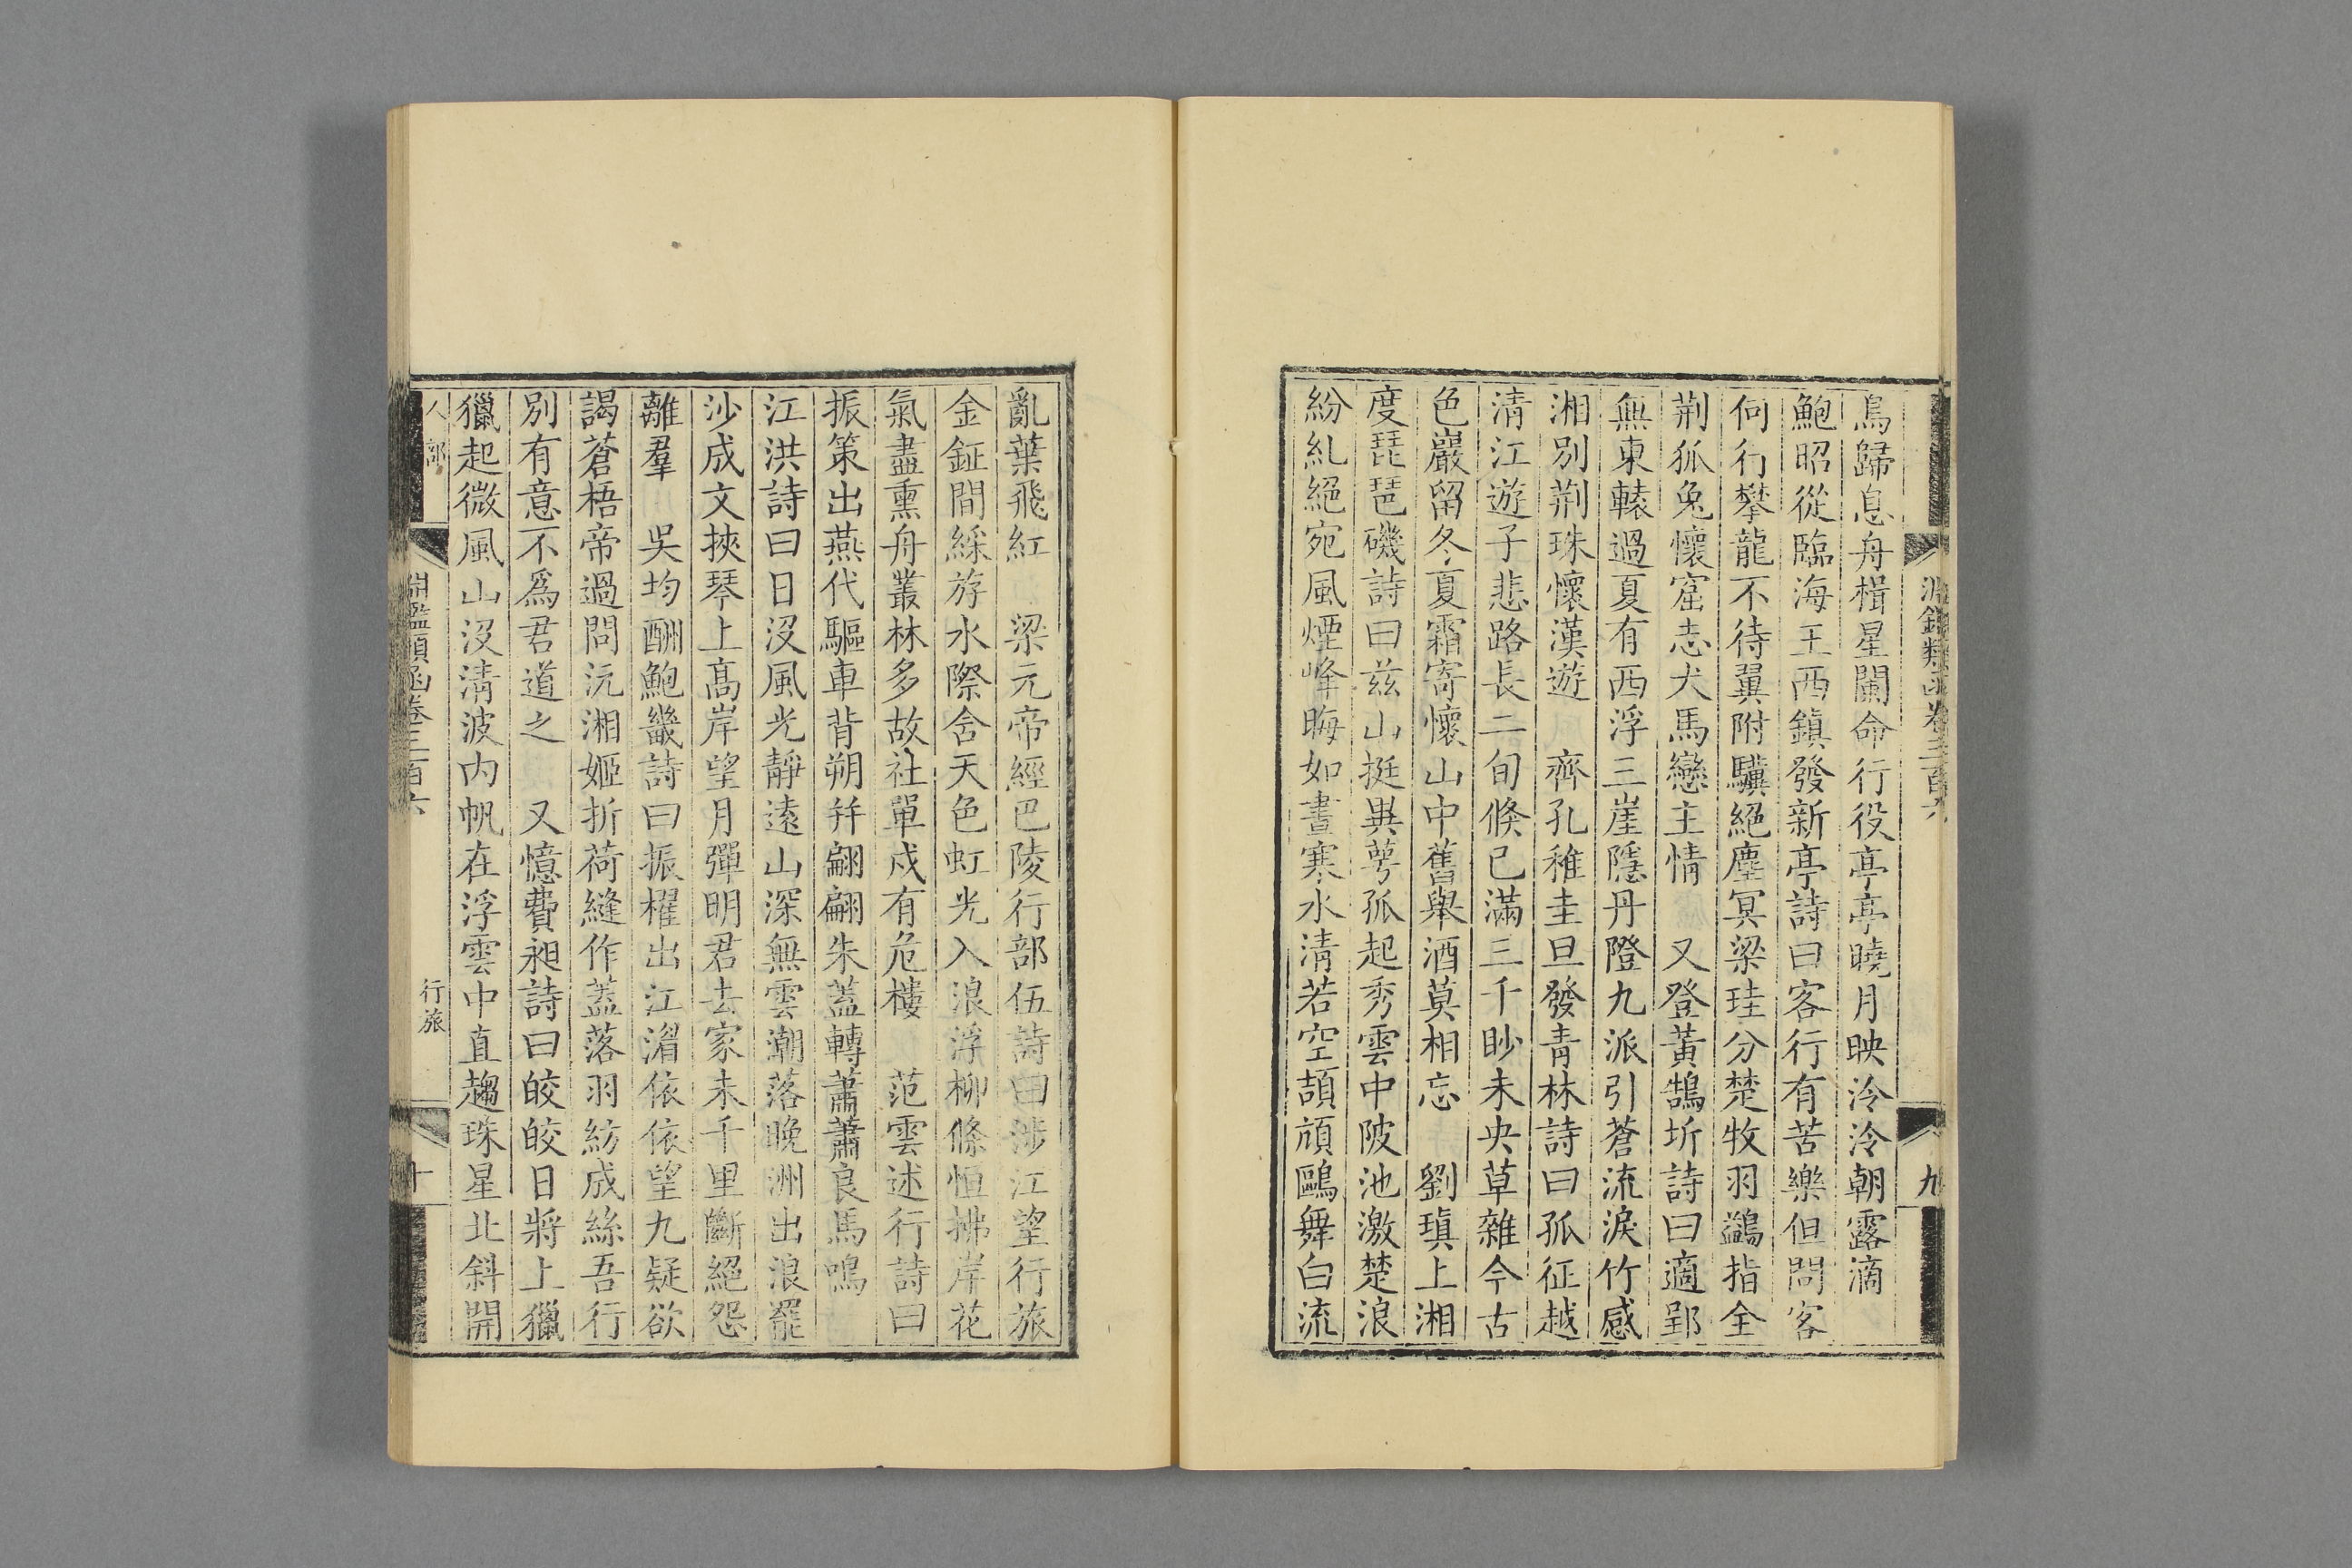 淵鑑類函卷三百六
九
鳥歸息舟楫星闌命行役亭亭曉月映泠泠朝露滴
鮑昭從臨海王西鎮發新亭詩曰客行有苦樂但問客
何行攀龍不待翼附驥絕塵冥梁珪分楚牧羽鷁指全
荆狐兔懷窟志犬馬戀主情 又登黃鵠圻詩曰適郢
無東轅過夏有西浮三崖隱丹隥九派引蒼流淚竹感
湘別荆珠懷漢遊 齊孔稚圭旦發青林詩曰孤征越
清江遊子悲路長二旬倏已滿三千眇未央草雜今古
色巖留冬夏霜寄懷山中舊舉酒莫相忘 劉瑱上湘
度琵琶磯詩曰茲山挺異萼孤起秀雲中陂池激楚浪
紛糺絕宛風煙峰晦如晝寒水清若空頡頏鷗舞白流
亂葉飛紅 梁元帝經巴陵行部伍詩曰涉江望行旅
金鉦間綵斿水際含天色虹光入浪浮柳條恒拂岸花
氣盡熏舟叢林多故社單戍有危樓 范雲述行詩曰
振策出燕代驅車背朔幷翩翩朱蓋轉蕭蕭良馬鳴
江洪詩曰日沒風光靜遠山深無雲潮落晚洲出浪罷
沙成文挾琴上高岸望月彈明君去家未千里斷絕怨
離羣 吳均酬鮑畿詩曰振櫂出江湄依依望九疑欲
謁蒼梧帝過問沅湘姬折荷縫作蓋落羽紡成絲吾行
別有意不爲君道之 又憶費昶詩曰皎皎日將上獵
獵起微風山沒清波內帆在浮雲中直趨珠星北斜開
人部
淵鑑類函卷三百六
行旅
十